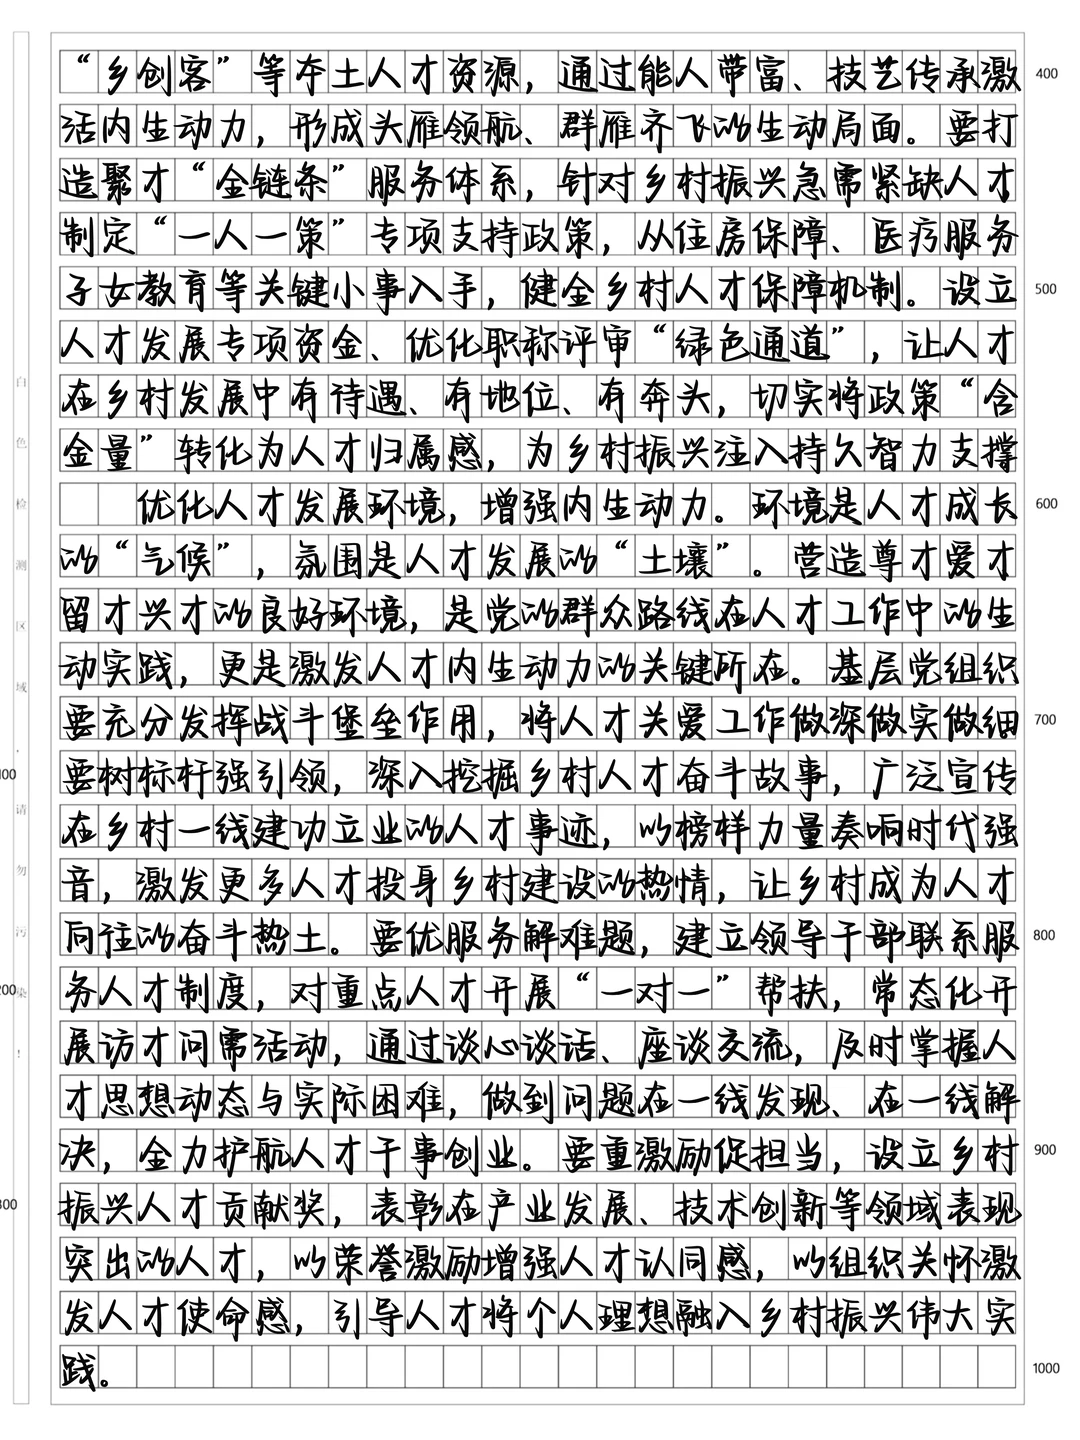 “乡创客”等本土人才资源，通过能人带富、技艺传承激 400
活内生动力，形成头雁领航、群雁齐飞的生动局面。要打
造聚才“金链条”服务体系，针对乡村振兴急需紧缺人才，
制定“一人一策”专项支持政策，从住房保障、医疗服务
子女教育等关键小事入手，健全乡村人才保障机制。设立 500
人才发展专项资金、优化职称评审“绿色通道”，让人才
在乡村发展中有待遇、有地位、有奔头，切实将政策“含
金量”转化为人才归属感，为乡村振兴注入持久智力支撑
优化人才发展环境，增强内生动力。环境是人才成长 600
的“气候”，氛围是人才发展的“土壤”。营造尊才爱才
留才兴才的良好环境，是党的群众路线在人才工作中的生
动实践，更是激发人才内生动力的关键所在。基层党组织
要充分发挥战斗堡垒作用，将人才关爱工作做深做实做细 700
要树标杆强引领，深入挖掘乡村人才奋斗故事，广泛宣传
在乡村一线建功立业的人才事迹，以榜样力量奏响时代强
音，激发更多人才投身乡村建设的热情，让乡村成为人才
向往的奋斗热土。要优服务解难题，建立领导干部联系服 800
务人才制度，对重点人才开展“一对一”帮扶，常态化开
展访才问需活动，通过谈心谈话、座谈交流，及时掌握人
才思想动态与实际困难，做到问题在一线发现、在一线解
决，全力护航人才干事创业。要重激励促担当，设立乡村 900
振兴人才贡献奖，表彰在产业发展、技术创新等领域表现
突出的人才，以荣誉激励增强人才认同感，以组织关怀激
发人才使命感，引导人才将个人理想融入乡村振兴伟大实
践。 1000
白色检测区域，请勿污染！
00
200
300